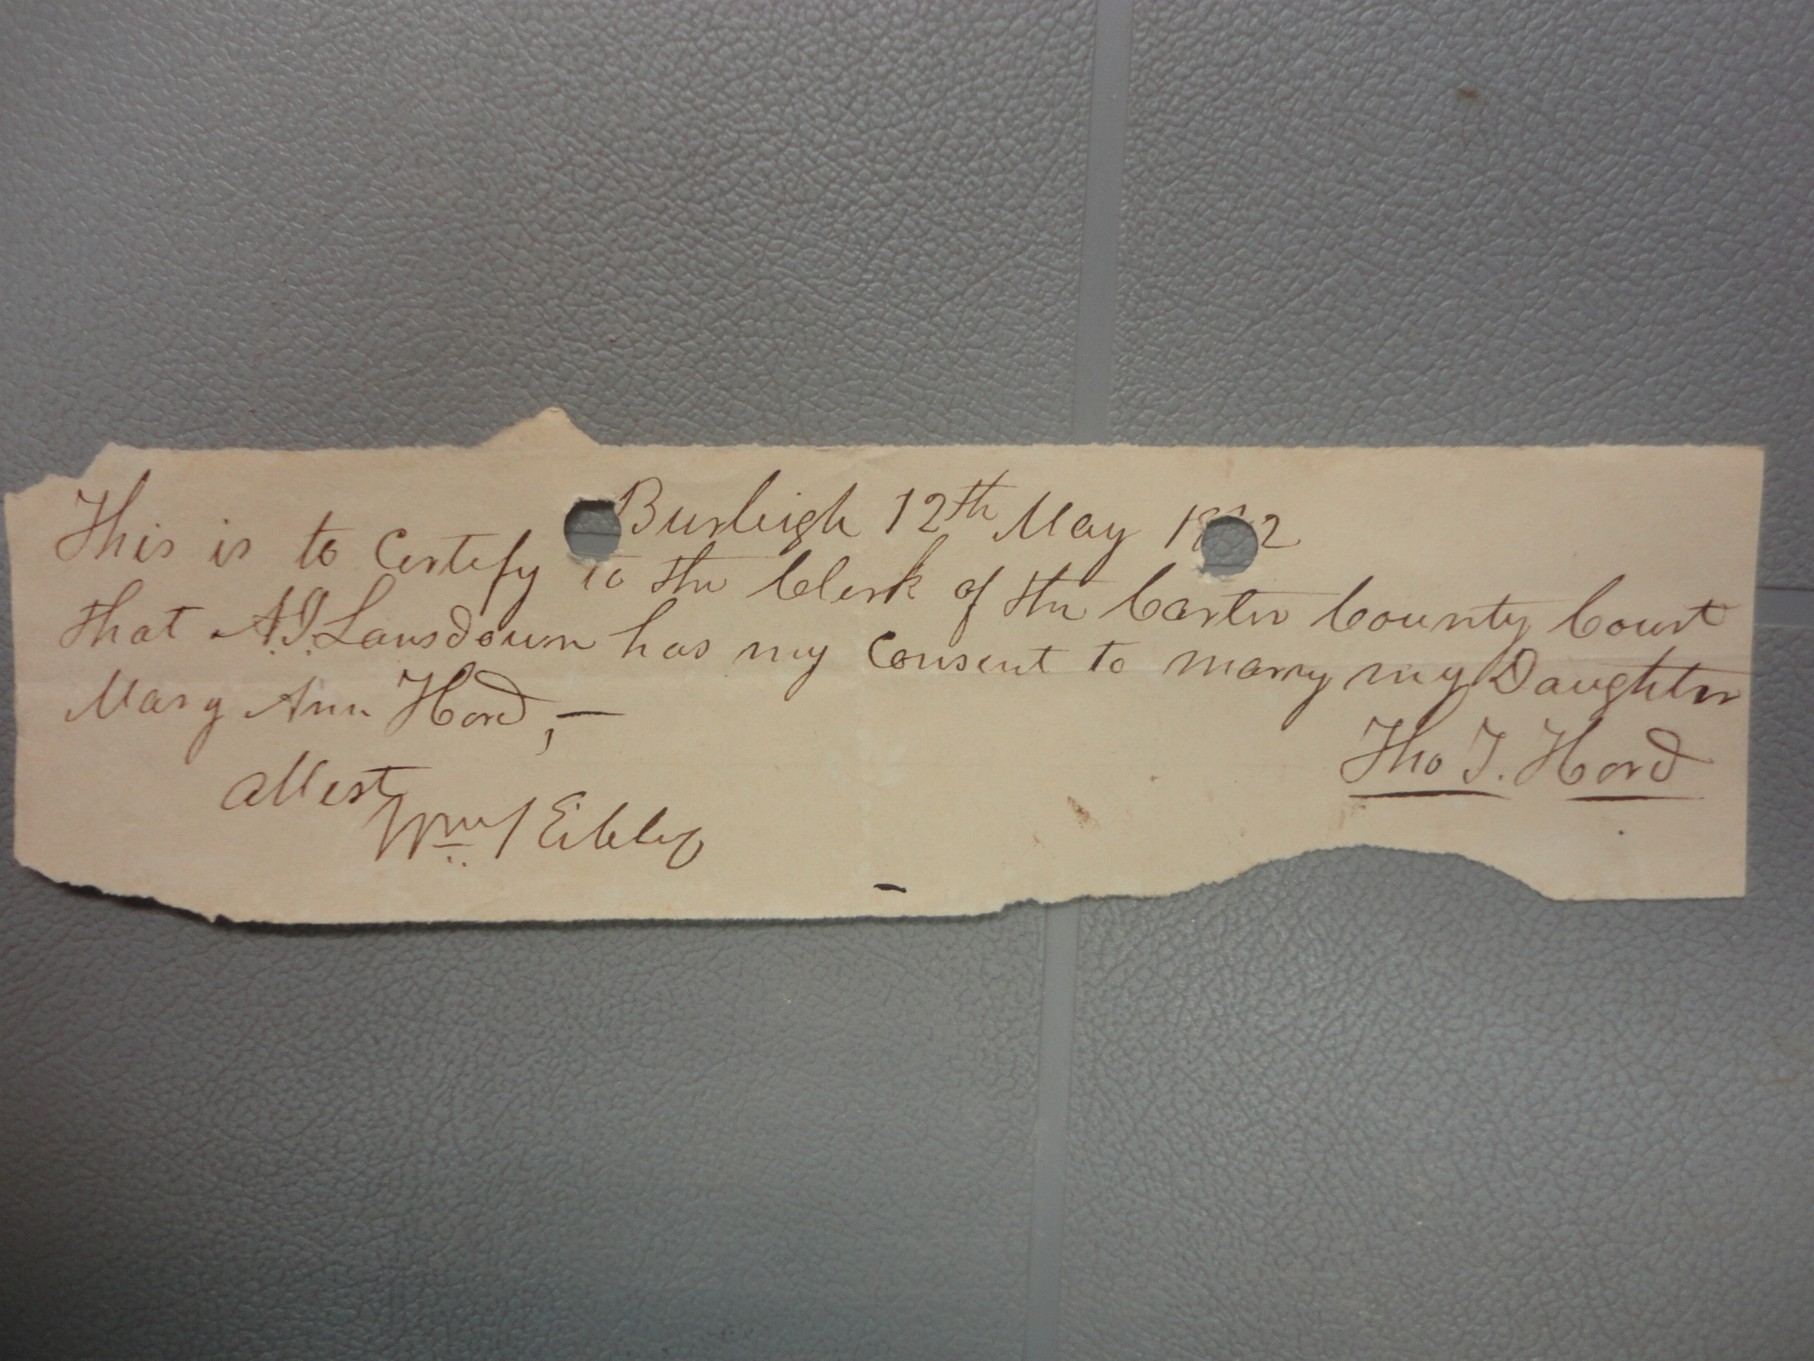 Burleigh 12th May 18 2
This is to Certify to the Clerk of the Carter County Court
that A. J. Lansdown has my Consent to marry my Daughter
Mary Ann Hord, —
Tho T. Hord
attest
Wm